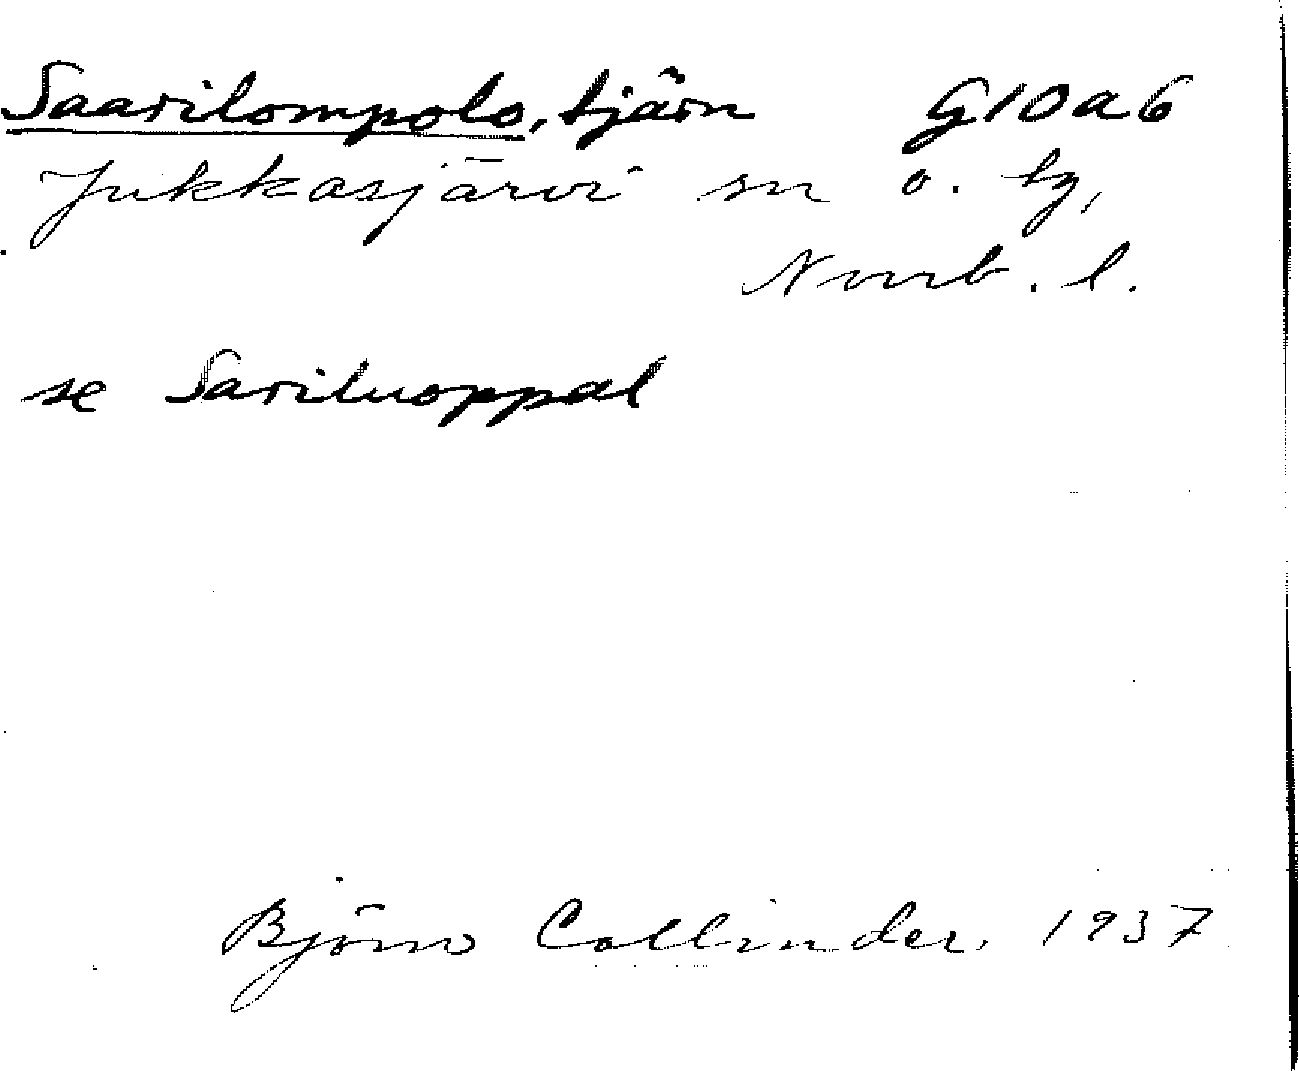 Saarilompolo, tjärn G10a6
Jukkasjärvi sn o. tg,
Norrb. l.
se Sariluoppal
Björn Collinder, 1937